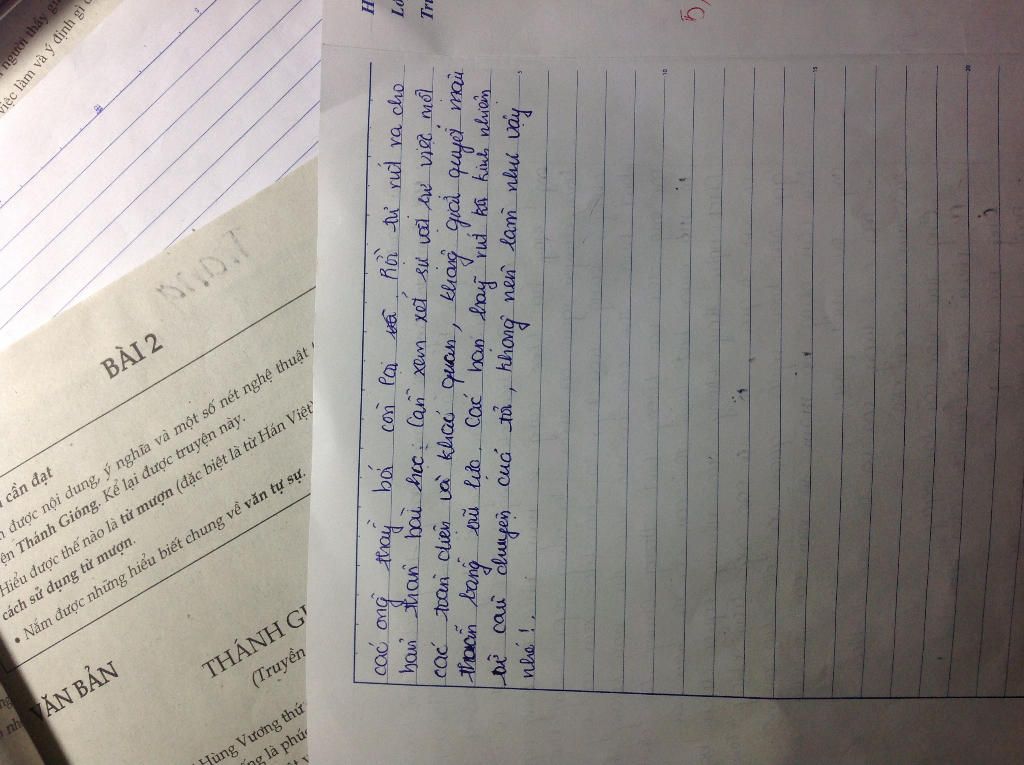 các ông thầy bói còn lại và Rồi tự rút ra cho
bản thân bài học: Cần xem xét sự vật sự việc một
các toàn diện và khác quan, không giải quyết mâu
thuẫn bằng vũ lực. Các bạn hãy rút ra kinh nhiệm
từ câu chuyện của tớ, không nên làm như vậy
nhé!.
5,
5
10
15
20
người thầy gi
việc làm và ý định gì
BÀI 2
cần đạt
được nội dung, ý nghĩa và một số nét nghệ thuật
yện Thánh Gióng. Kể lại được truyện này.
Hiểu được thế nào là từ mượn (đặc biệt là từ Hán Việt)
cách sử dụng từ mượn.
• Nắm được những hiểu biết chung về văn tự sự.
VĂN BẢN
THÁNH GI
(Truyền
Hùng Vương thứ
ng là phúc